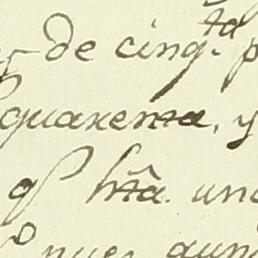 de cinq.ta p
quarenta, y
q hta. una
nues aun